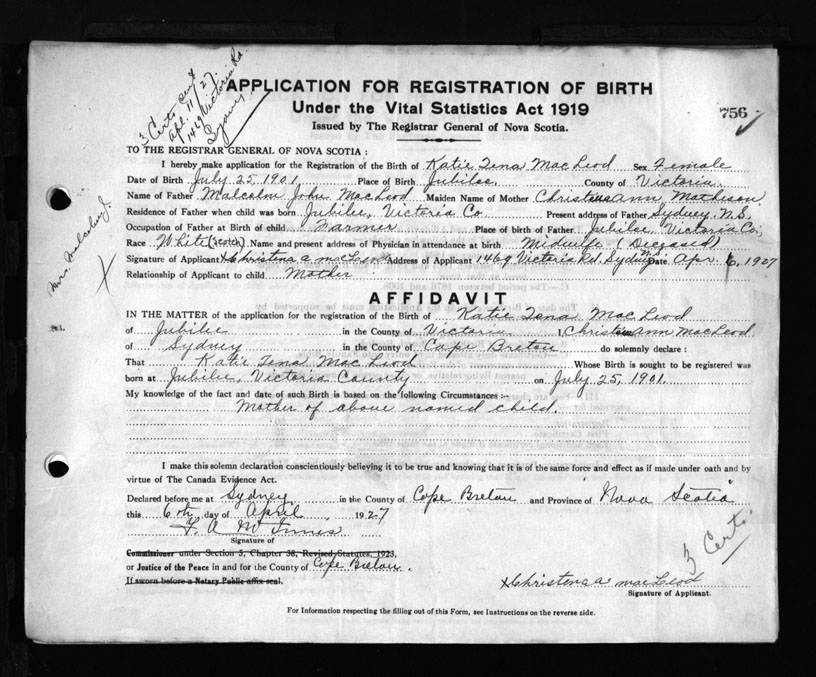 3 Certs sent
Apl. 11/27.
1469 Victoria Rd.
Sydney
APPLICATION FOR REGISTRATION OF BIRTH
Under the Vital Statistics Act 1919
756
Issued by The Registrar General of Nova Scotia.
TO THE REGISTRAR GENERAL OF NOVA SCOTIA :
I hereby make application for the Registration of the Birth of Katie Tena MacLeod Sex Female
Date of Birth July 25, 1901 Place of Birth Jubilee County of Victoria
Name of Father Malcolm John MacLeod Maiden Name of Mother Christena Ann Matheson
Residence of Father when child was born Jubilee, Victoria Co. Present address of Father Sydney, N.S.
Occupation of Father at Birth of child. Farmer Place of birth of Father Jubilee Victoria Co.
Race White (Scotch) Name and present address of Physician in attendance at birth Midwife (Deceased)
Signature of Applicant Christena a macLeod Address of Applicant 1469 Victoria Rd. Sydney N.S. Date Apr. 6, 1927
Relationship of Applicant to child Mother
Mrs.
AFFIDAVIT
IN THE MATTER of the application for the registration of Birth of Katie Tena MacLeod
of Jubilee in the County of Victoria I, Christena Ann MacLeod
of Sydney in the County of Cape Breton do solemnly declare :
That Katie Tena MacLeod Whose Birth is sought to be registered was
born at Jubilee, Victoria County on July 25, 1901.
My knowledge of the fact and date of such Birth is based on the following Circumstances :-
Mother of above named child.
I make this solemn declaration conscientiously believing it to be true and knowing that it is of the same force and effect as if made under oath and by
virtue of The Canada Evidence Act.
Declared before me at Sydney in the County of Cape Breton and Province of Nova Scotia
this 6th day of April 1927
F. A. W Innes
Signature of
Commissioner under Section 5, Chapter 38, Revised Statutes, 1923,
or Justice of the Peace in and for the County of Cape Breton.
If sworn before a Notary Public affix seal.
3 Certs.
Christena a macLeod
Signature of Applicant.
For Information respecting the filling out of this Form, see Instructions on the reverse side.